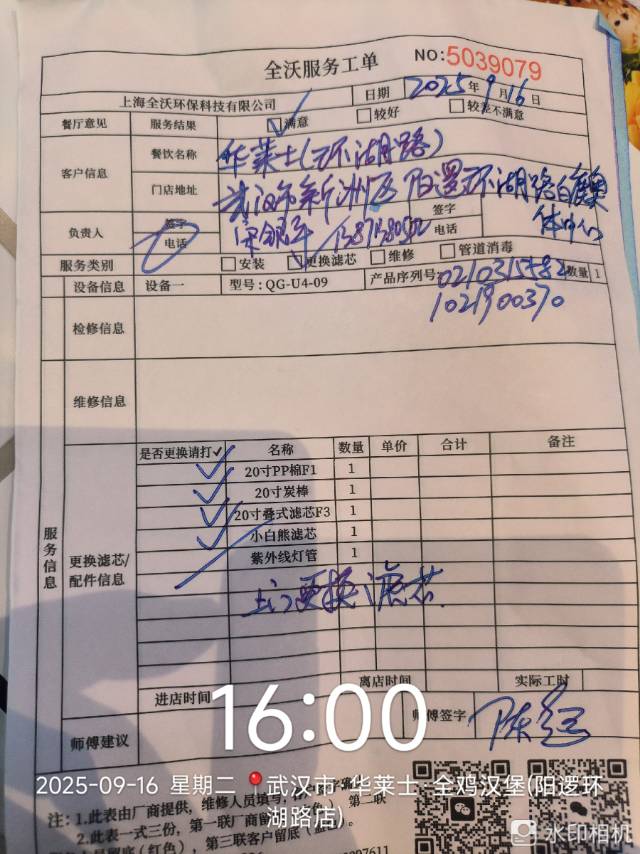 全沃服务工单
NO:5039079
上海全沃环保科技有限公司 日期 2025年9月16日
餐厅意见 服务结果 满意 较好 较差不满意
客户信息 餐饮名称 华莱士(环湖路)
门店地址 武汉市新洲区阳逻环湖路
负责人 签字 签字
电话 电话
服务类别 安装 更换滤芯 维修 管道消毒
设备信息 设备一 型号:QG-U4-09 产品序列号: 数量 1
1021900370
检修信息
维修信息
服务信息
更换滤芯/配件信息
是否更换请打✓ 名称 数量 单价 合计 备注
✓ 20寸PP棉F1 1
✓ 20寸炭棒 1
✓ 20寸叠式滤芯F3 1
✓ 小白熊滤芯 1
紫外线灯管 1
上门更换滤芯
进店时间 离店时间 实际工时
师傅建议 师傅签字
16:00
2025-09-16 星期二 武汉市·华莱士·全鸡汉堡(阳逻环
湖路店)
注:1.此表由厂商提供,维修人员填写,
2.此表一式三份,第一联厂商留底 第二联
留底(红色),第三联客户留底
水印相机